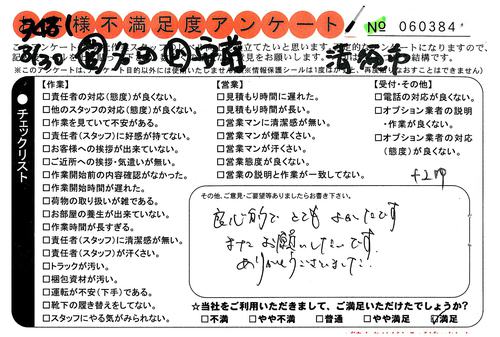 お客様不満足度アンケート
No 060384
8/30
【作業】
□責任者の対応(態度)が良くない。
□他のスタッフの対応(態度)が良くない。
□作業を見ていて不安がある。
□責任者(スタッフ)に好感が持てない。
□お客様への挨拶が出来ていない。
□ご近所への挨拶・気遣いが無い。
□作業開始前の内容確認がなかった。
□作業開始時間が遅れた。
□荷物の取り扱いが雑である。
□お部屋の養生が出来ていない。
□作業時間が長すぎる。
□責任者(スタッフ)に清潔感が無い。
□責任者(スタッフ)が汗くさい。
□トラックが汚い。
□梱包資材が汚い。
□運転が不安(下手)である。
□靴下の履き替えをしてない。
□スタッフにやる気がみられない。
【営業】
□見積もり時間に遅れた。
□見積もり時間が長い。
□営業マンに清潔感が無い。
□営業マンが煙草くさい。
□営業マンが汗くさい。
□営業態度が良くない。
□営業の説明と作業が一致してない。
【受付・その他】
□電話の対応が良くない。
□オプション業者の説明
・作業が良くない。
□オプション業者の対応
(態度)が良くない。
●チェックリスト
その他、ご意見・ご要望等ありましたらお書き下さい。
良心的で とても よかったです
またお願いしたいです。
ありがとうございました。
☆当社をご利用いただきまして、ご満足いただけでしょうか?
□不満 □やや不満 □普通 □やや満足 ☑満足